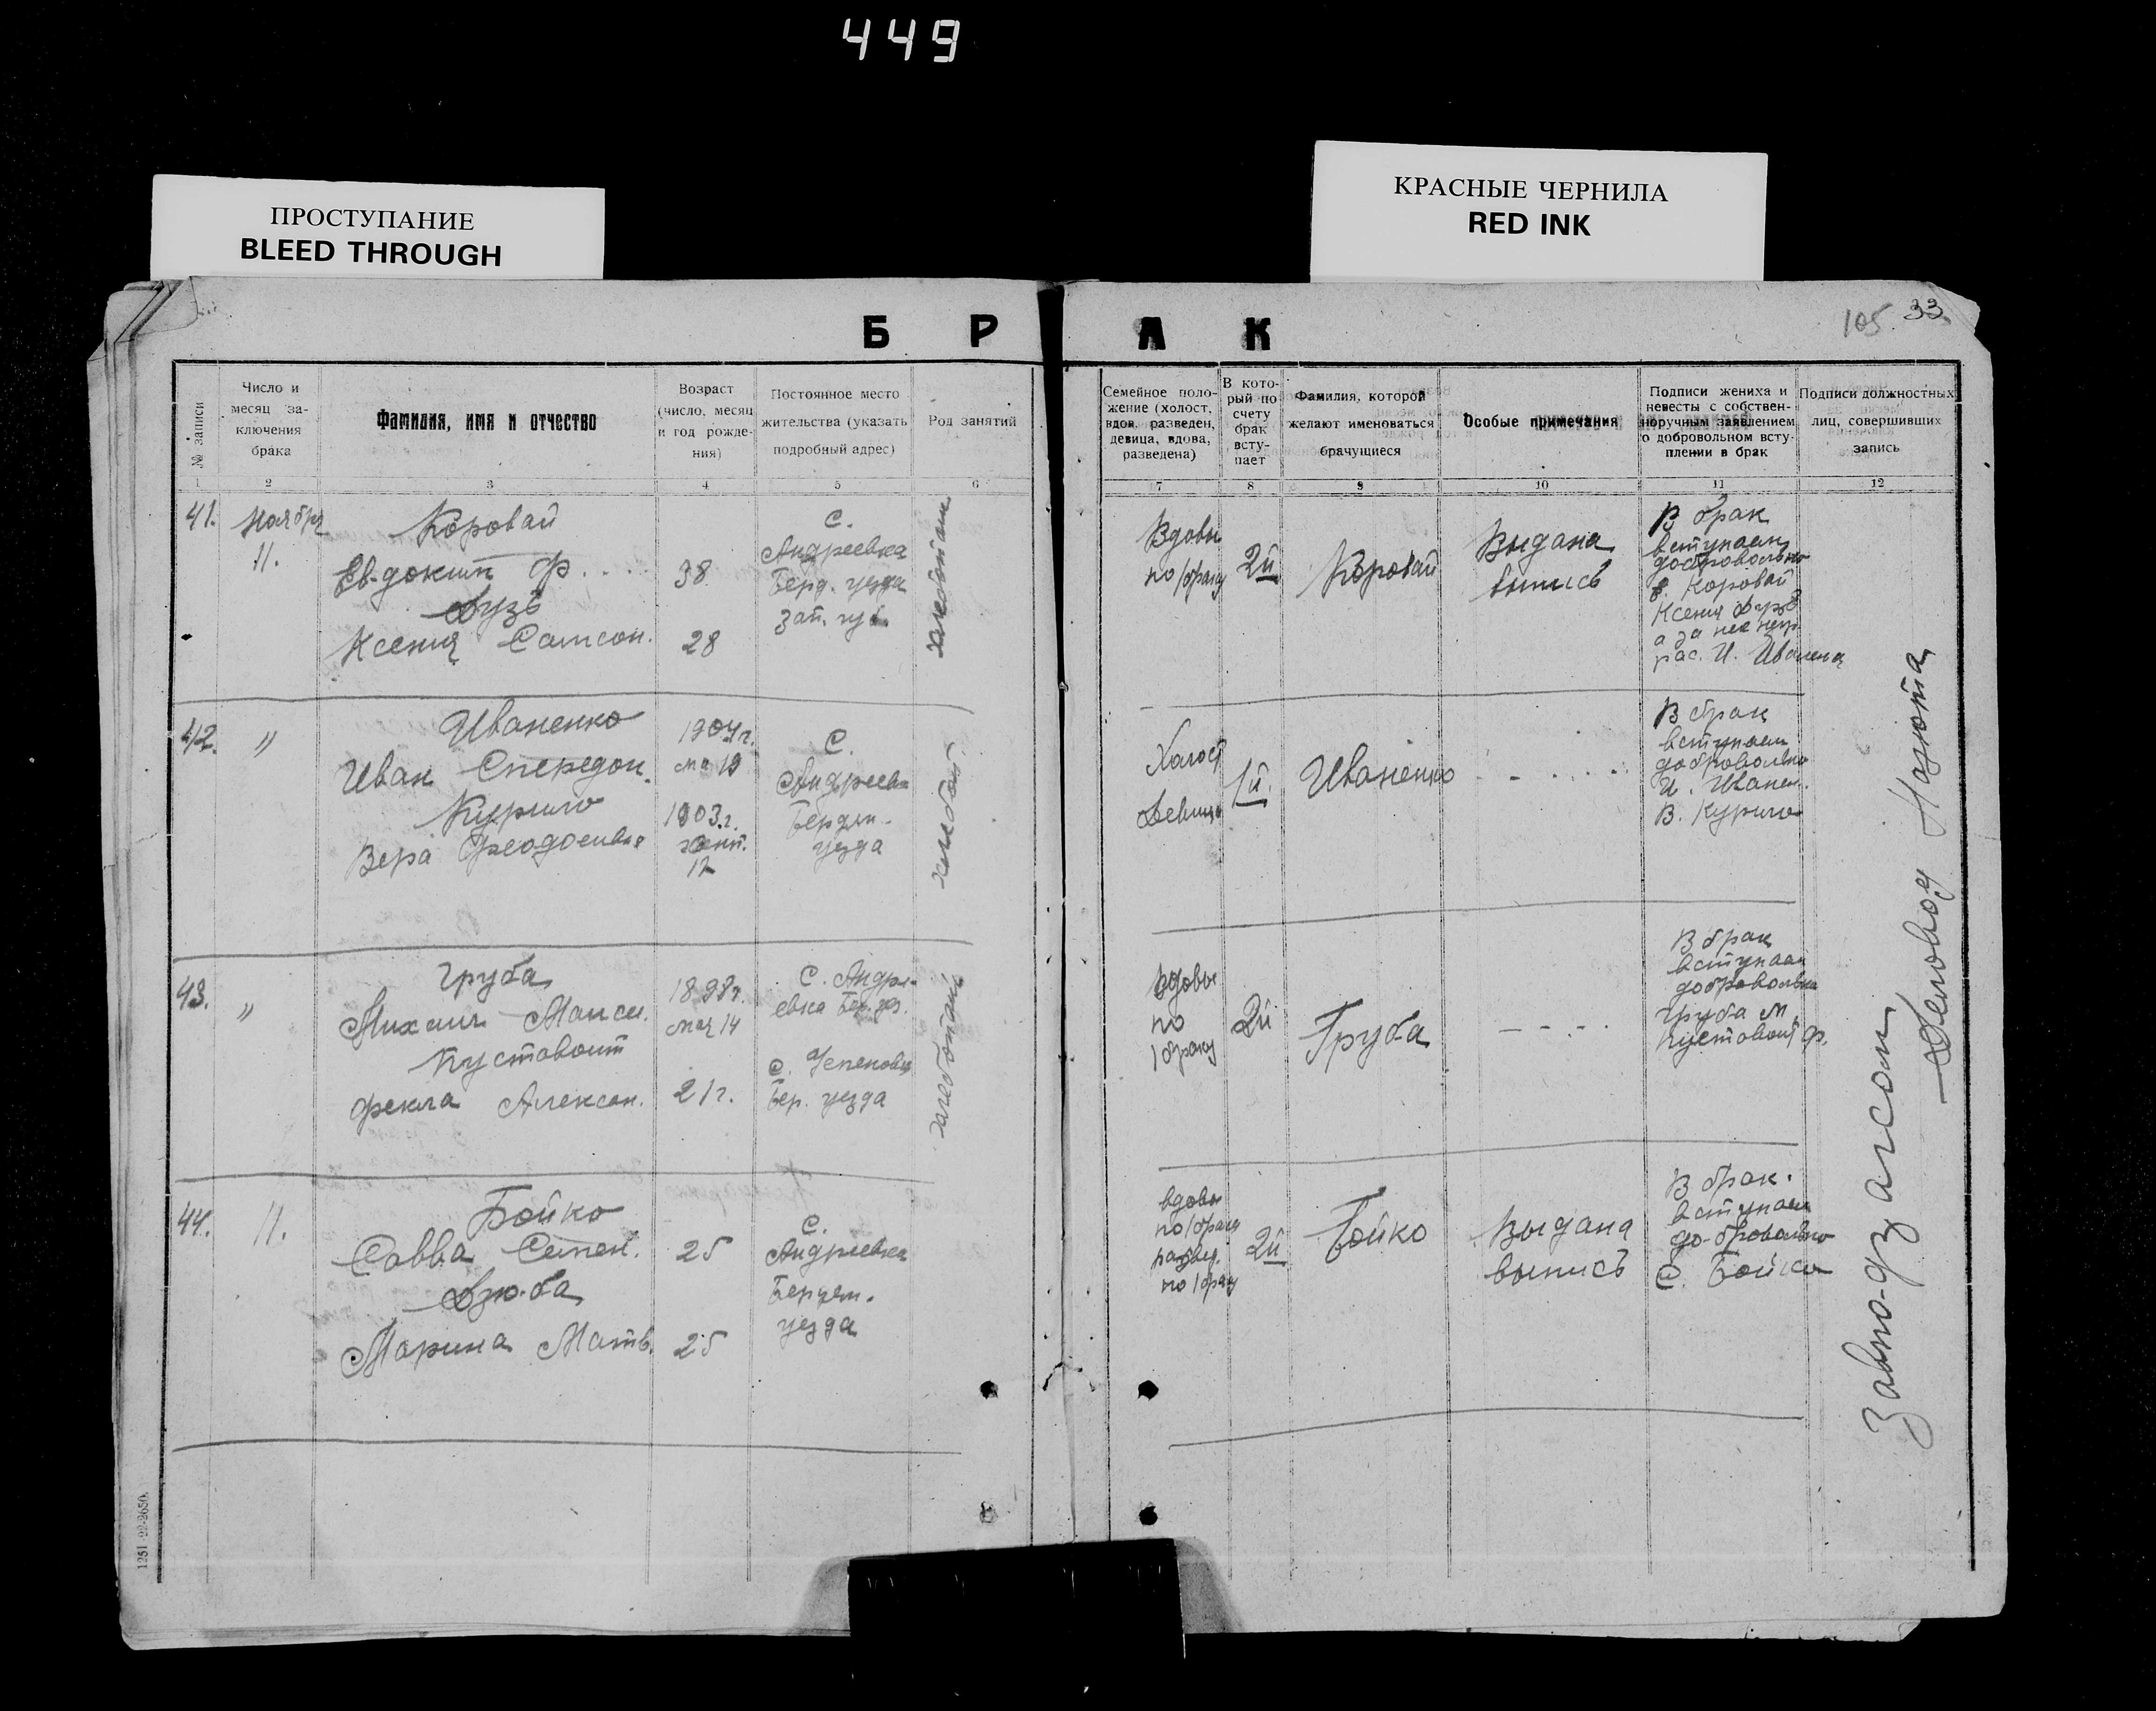 449
ПРОСТУПАНИЕ
BLEED THROUGH
КРАСНЫЕ ЧЕРНИЛА
RED INK
105. 33.
Б Р А К
№ записи
Число и
месяц за-
ключения
брака
Фамилия, имя и отчество
Возраст
(число, месяц
и год рожде-
ния)
Постоянное место
жительства (указать
подробный адрес)
Род занятий
Семейное поло-
жение (холост,
вдов, разведен,
девица, вдова,
разведена)
В кото-
рый по
счету
брак
всту-
пает
Фамилия, которой
желают именоваться
брачущиеся
Особые примечания
Подписи жениха и
невесты с собствен-
норучным заявлением
о добровольном всту-
плении в брак
Подписи должностных
лиц, совершивших
запись
1 2 3 4 5 6 7 8 9 10 11 12
41.
Ноября
11.
Коровай
Евдоким Ф. . . .
Дузь
Ксения Самсон.
38
28
С.
Андреевка
Берд. уезда
Зап. губ.
хлебопаш.
Вдовы
по 1 браку
2й
Коровай
Выдана
выпись
В брак
вступаем
добровольно
Е. Коровай
Ксения Дузь
а за нее негр.
рас. И.
42.
"
Иваненко
Иван Спередон.
Курило
Вера Феодосиевна
1904 г.
мая 19
1903 г.
сент.
17
С.
Андреев
Бердян.
уезда
хлебопаш.
Холост
Девица
1й.
Иваненко
- - . . . . .
В брак
вступаем
добровольно
И. Иванен.
В. Курило
43.
"
Груба
Михаил Макси.
Пустовоит
Фекла Алексан.
1898 г.
мая 14
21 г.
С. Андре-
евка Бер. уез.
с.
Бер. уезда
хлебопаш.
вдовы
по
1 браку
2й
Груба
- - - .
В брак
вступаем
добровольно
Груба М.
Пустовоит Ф.
44.
11.
Бойко
Савва Семен.
Дзюба
Марина Матв.
25
25
С.
Андреевка
Бердян.
уезда
вдовы
по 1 браку
развед.
по 1 браку
2й
Бойко
Выдана
выпись
В брак
вступаем
добровольно
С. Бойко
Завпо-дз агсом
Деловод
1251 22-2650.